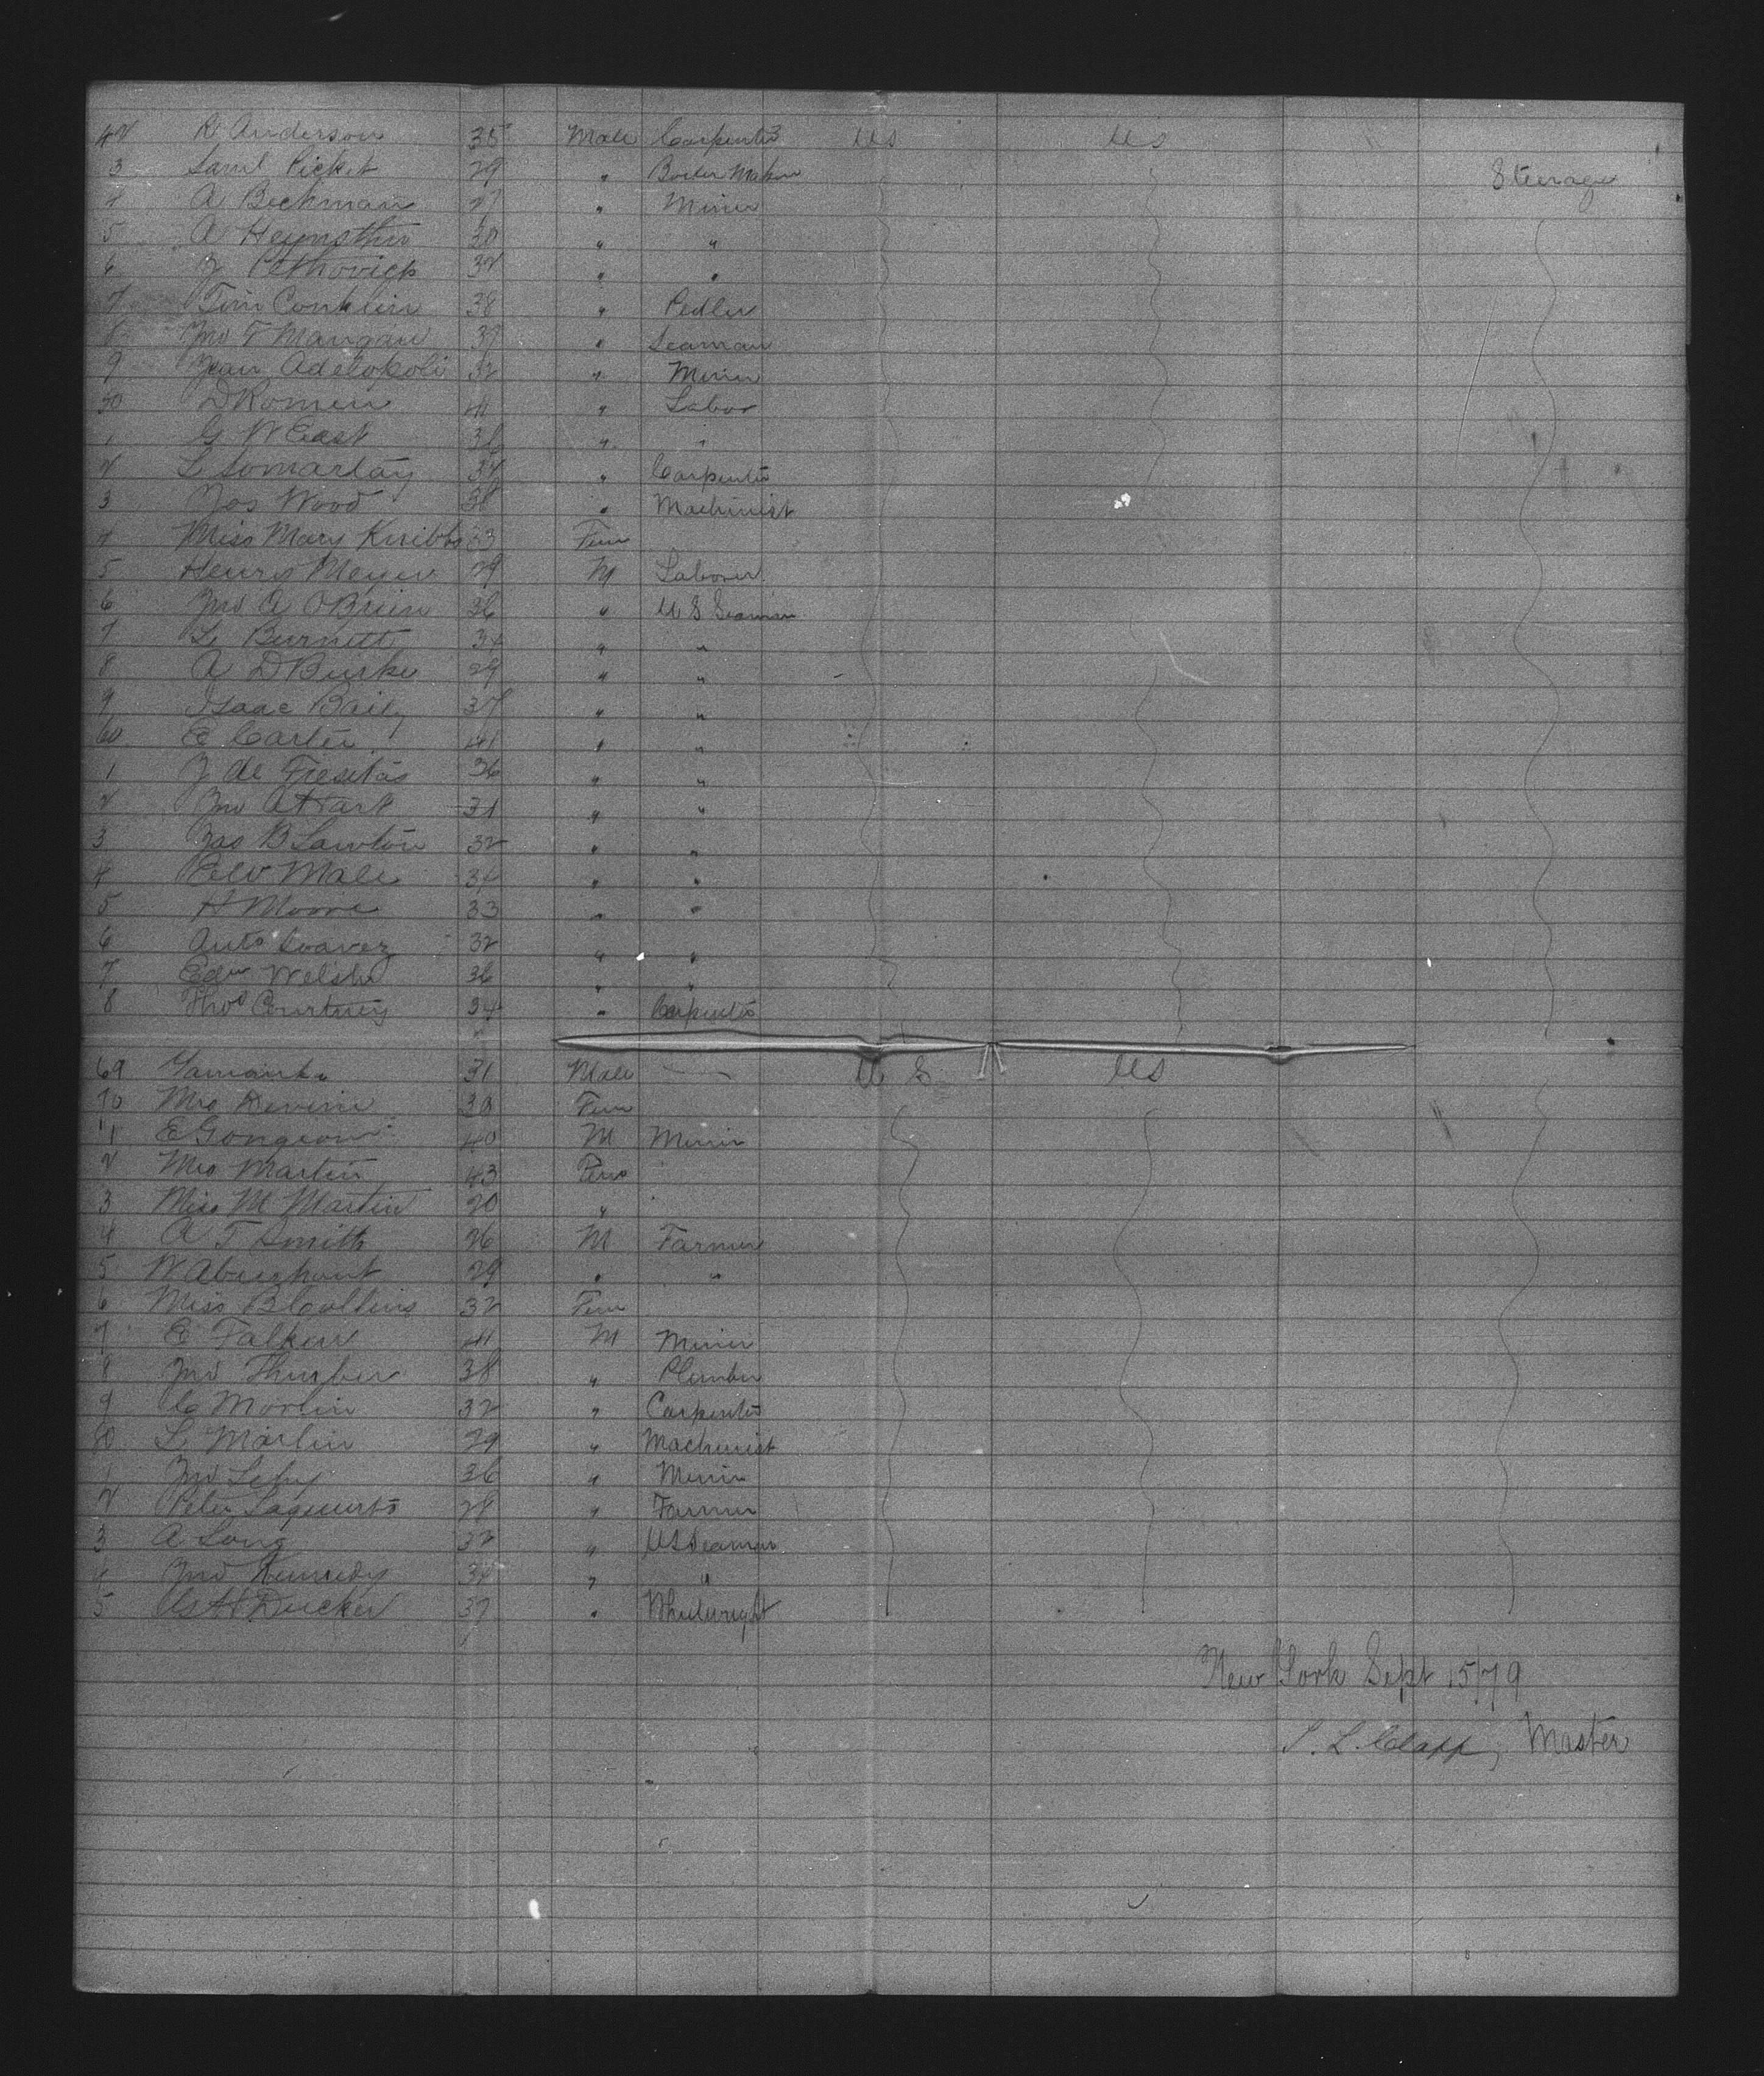 42 R Anderson 35 Male Carpenter US US
3 Saml Picket 29 " Boiler Maker Steerage
4 A Beckman 27 " Miner
5 A 30 " "
6 J Petrovich 32 " "
7 Tim Conklin 38 " Pedler
8 Jno T Mangan 37 " Seaman
9 Jean 32 " Miner
50 D Romen 41 " Labor
1 G W East 31 " "
2 L 34 " Carpenter
3 Jos Wood 38 " Machinist
4 Miss Mary Knibbs 33 Fem
5 Henry Meyer 29 M Laborer
6 Jno A OBrien 36 " U S Seaman
7 L Burnett 34 " "
8 A D Burke 29 " "
9 Isaac Baily 37 " "
60 E Carter 41 " "
1 J de Freitas 36 " "
2 Jno A Hart 31 " "
3 Jas B Lawton 32 " "
4 Male 34 " "
5 H Moore 33 " "
6 Anto Soavez 32 " "
7 Edw Welsh 36 " "
8 Thos Courtney 34 " Carpenter
69 Yamanka 31 Male — U S US
70 Mrs Devine 30 Fem
1 E 40 M Miner
2 Mrs Martin 43 Fem
3 Miss M Martin 20 "
4 A T Smith 26 M Farmer
5 W 29 " "
6 Miss B Collins 32 Fem
7 E Falken 41 M Miner
8 Jno Thurber 38 " Plumber
9 C Morlin 32 " Carpenter
80 L Marlin 29 " Machinist
1 Jno 36 " Miner
2 Peter 28 " Farmer
3 A Long 32 " US Seaman
4 Jno Kennedy 34 " "
5 Ducker 37 " Wheelwright
New York Sept 15/79
S. L. Clapp, Master